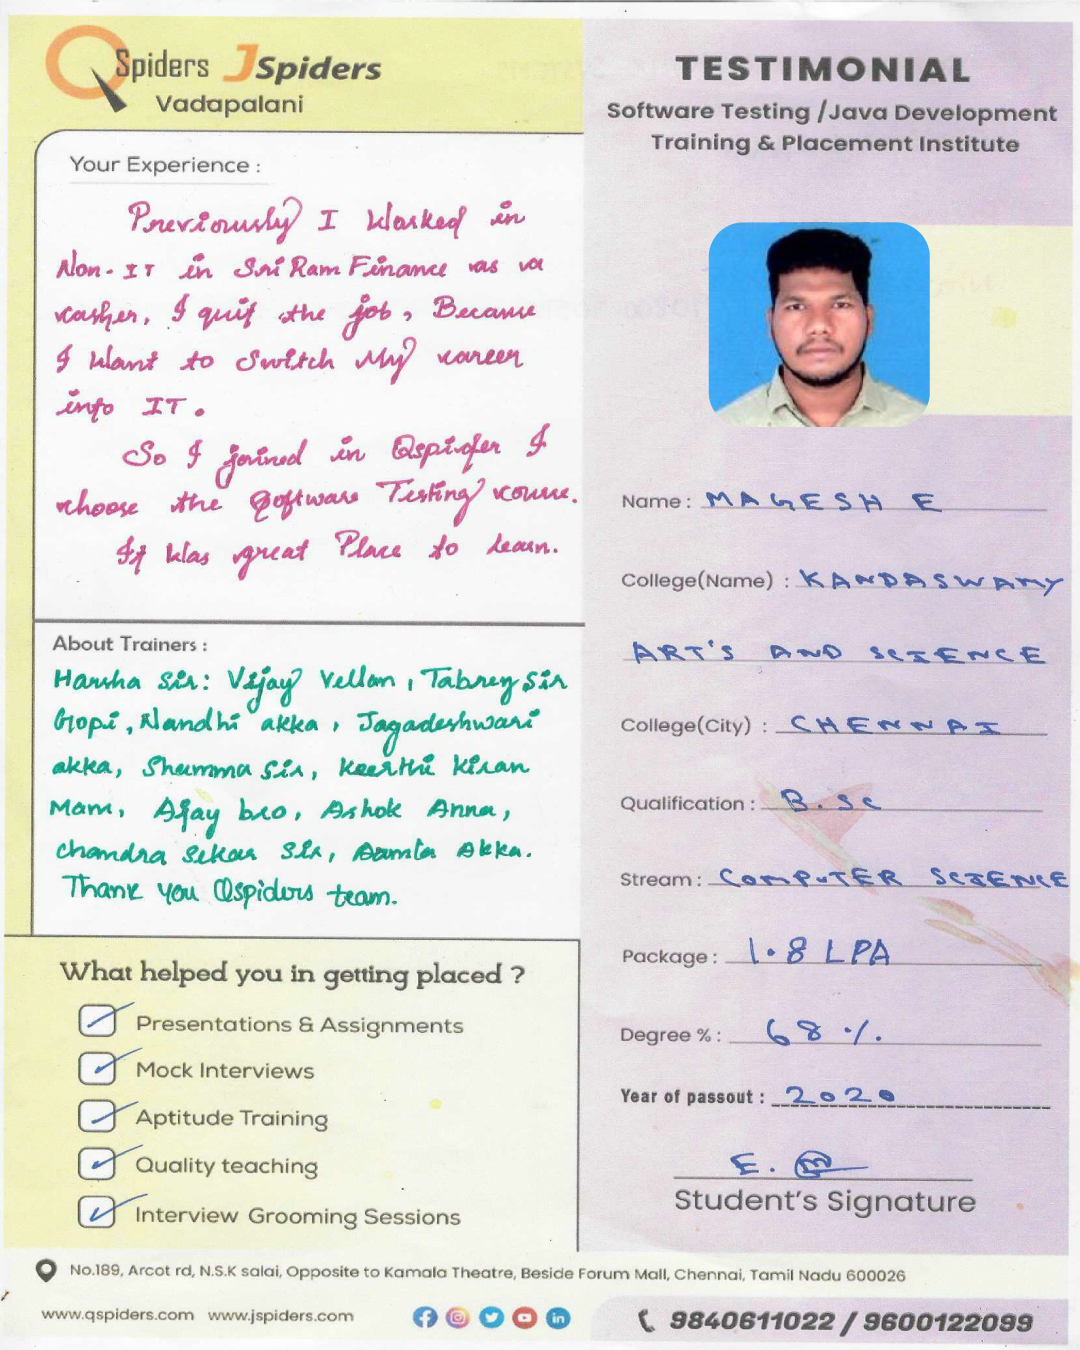 QSpiders JSpiders
Vadapalani
Your Experience :
Previously I Worked in
Non-IT in Sri Ram Finance as a
casher, I quit the job, Because
I Want to Switch My career
into IT.
So I joined in Qspider I
choose the Software Testing course.
It Was great Place to learn.
About Trainers :
Harsha Sir: Vijay Vellan, Tabrey Sir
Gopi, Nandhi akka, Jagadeshwari
akka, Shamma Sir, Keerthi Kiran
Mam, Ajay bro, Ashok Anna,
Chandra Sekar Sir, Akka.
Thank you Qspiders team.
What helped you in getting placed ?
Presentations & Assignments
Mock Interviews
Aptitude Training
Quality teaching
Interview Grooming Sessions
TESTIMONIAL
Software Testing /Java Development
Training & Placement Institute
Name : MAGESH E
College(Name) : KANDASWAMY
ART'S AND SCIENCE
College(City) : CHENNAI
Qualification : B.Sc
Stream : COMPUTER SCIENCE
Package : 1.8 LPA
Degree % : 68 %.
Year of passout : 2020
E. M
Student's Signature
No.189, Arcot rd, N.S.K salai, Opposite to Kamala Theatre, Beside Forum Mall, Chennai, Tamil Nadu 600026
www.qspiders.com www.jspiders.com
9840611022 / 9600122099